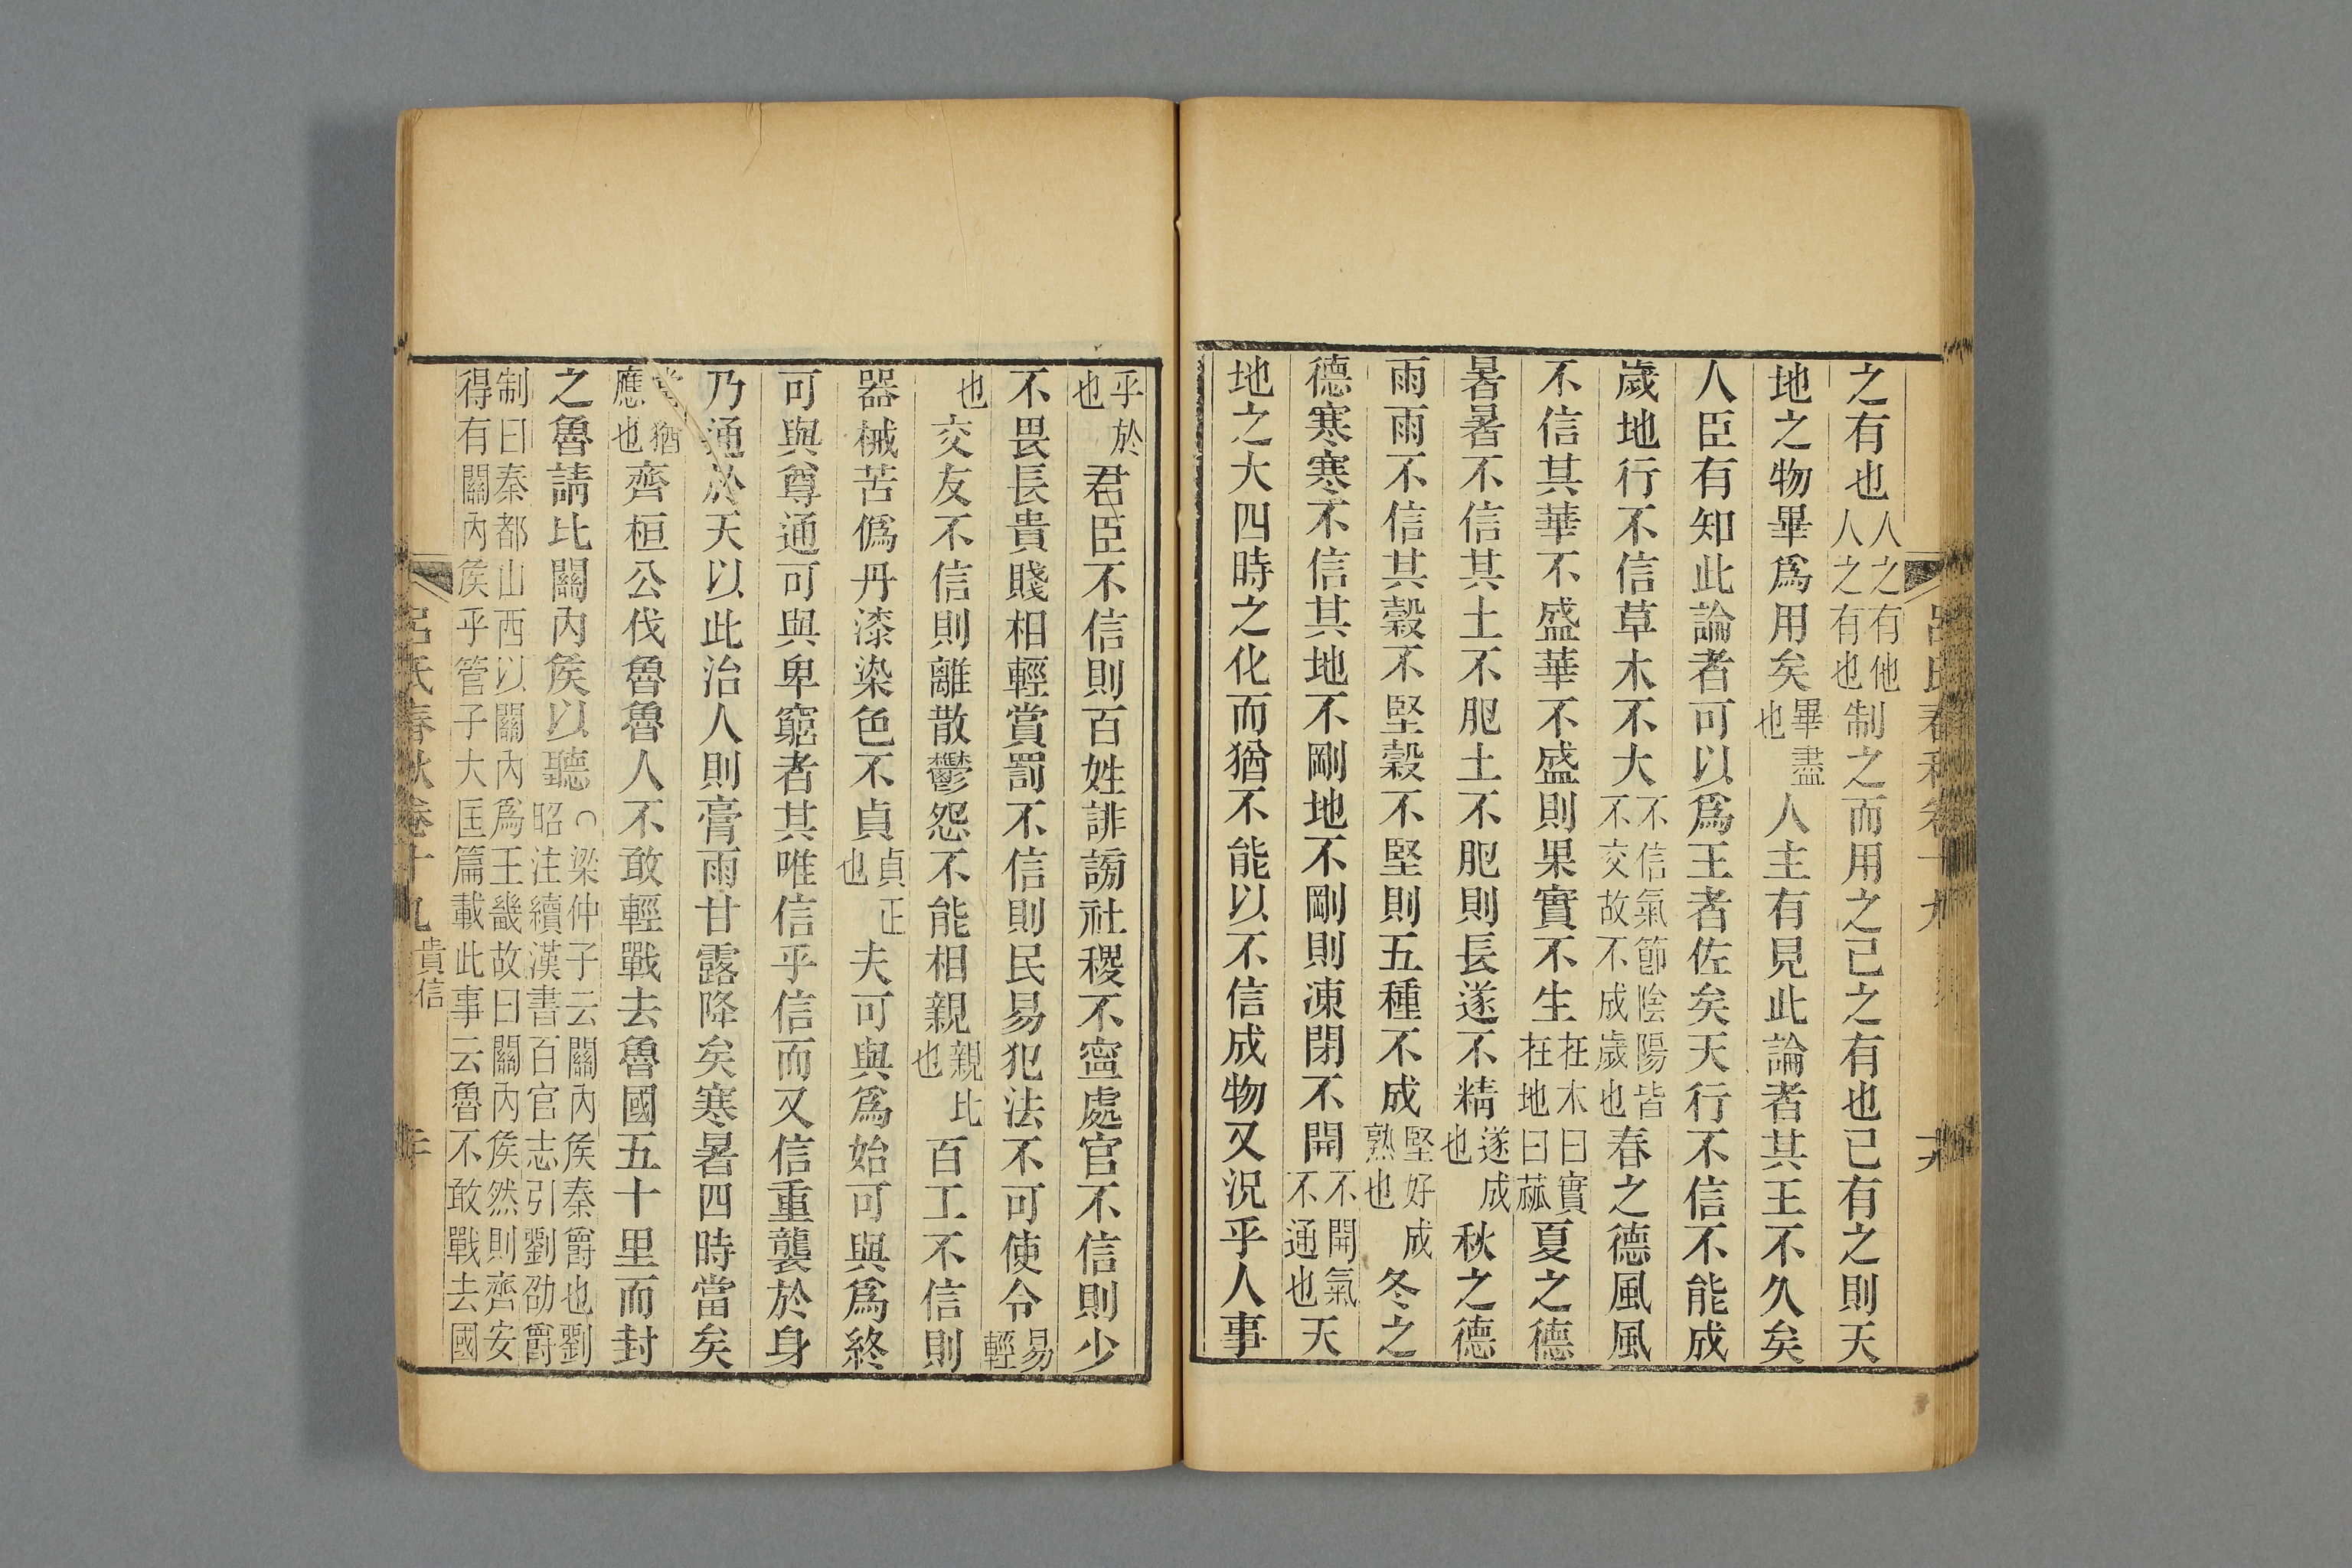 之有也人之有他人之有也制之而用之己之有也己有之則天
地之物畢爲用矣畢盡也人主有見此論者其王不久矣
人臣有知此論者可以爲王者佐矣天行不信不能成
歲地行不信草木不大不信氣節陰陽皆不交故不成歲也春之德風風
不信其華不盛華不盛則果實不生在木曰實在地曰蓏夏之德
暑暑不信其土不肥土不肥則長遂不精遂成也秋之德
雨雨不信其穀不堅穀不堅則五種不成堅好成熟也冬之
德寒寒不信其地不剛地不剛則凍閉不開不開氣不通也天
地之大四時之化而猶不能以不信成物又況乎人事
乎於也君臣不信則百姓誹謗社稷不寧處官不信則少
不畏長貴賤相輕賞罰不信則民易犯法不可使令易輕
也交友不信則離散鬱怨不能相親親比也百工不信則
器械苦僞丹漆染色不貞貞正也夫可與爲始可與爲終
可與尊通可與卑窮者其唯信乎信而又信重襲於身
乃通於天以此治人則膏雨甘露降矣寒暑四時當矣
當猶應也齊桓公伐魯魯人不敢輕戰去魯國五十里而封
之魯請比關內矦以聽○梁仲子云關內矦秦爵也劉昭注續漢書百官志引劉劭爵
制曰秦都山西以關內爲王畿故曰關內矦然則齊安得有關內矦乎管子大匡篇載此事云魯不敢戰去國
呂氏春秋卷十九 貴信